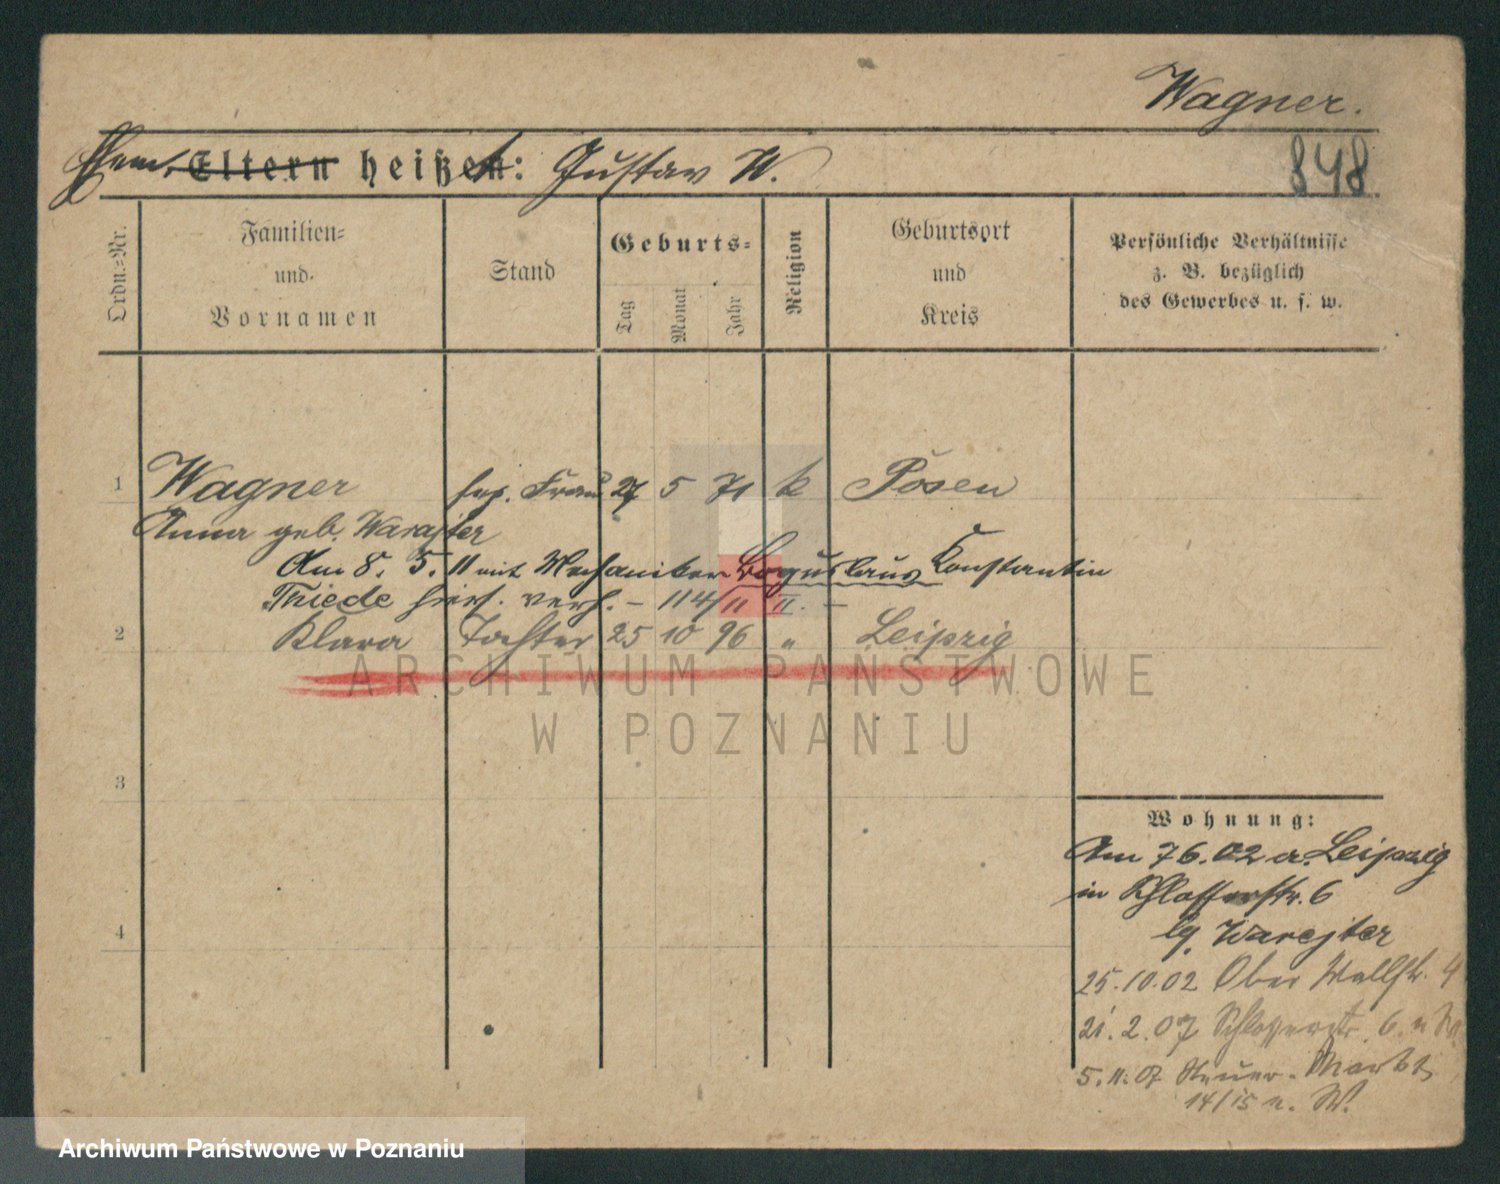 Wagner.
Eltern heißen: Gustav W.
848
Ordn.-Nr.
Familien-
und
Vornamen
Stand
Geburts-
Tag
Monat
Jahr
Religion
Geburtsort
und
Kreis
Persönliche Verhältnisse
z. B. bezüglich
des Gewerbes u. s. w.
1 Wagner sep. Frau 27 5 71 k Posen
Anna geb. Warejter
Am 8. 5. 11 mit Mechaniker Boguslaus Konstantin
Thiede hiers. verh. – 114/11 II. –
2 Klara Tochter 25 10 96 " Leipzig
3
4
Wohnung:
Am 7 6. 02 a. Leipzig
in Schlosserstr. 6
bg. Warejter
25. 10. 02 Ober Wallstr. 4
21. 2. 07 Schlosserstr. 6. n W.
5. 11. 07 Neuer-Markt
14/15 n. W.
ARCHIWUM PAŃSTWOWE
W POZNANIU
Archiwum Państwowe w Poznaniu